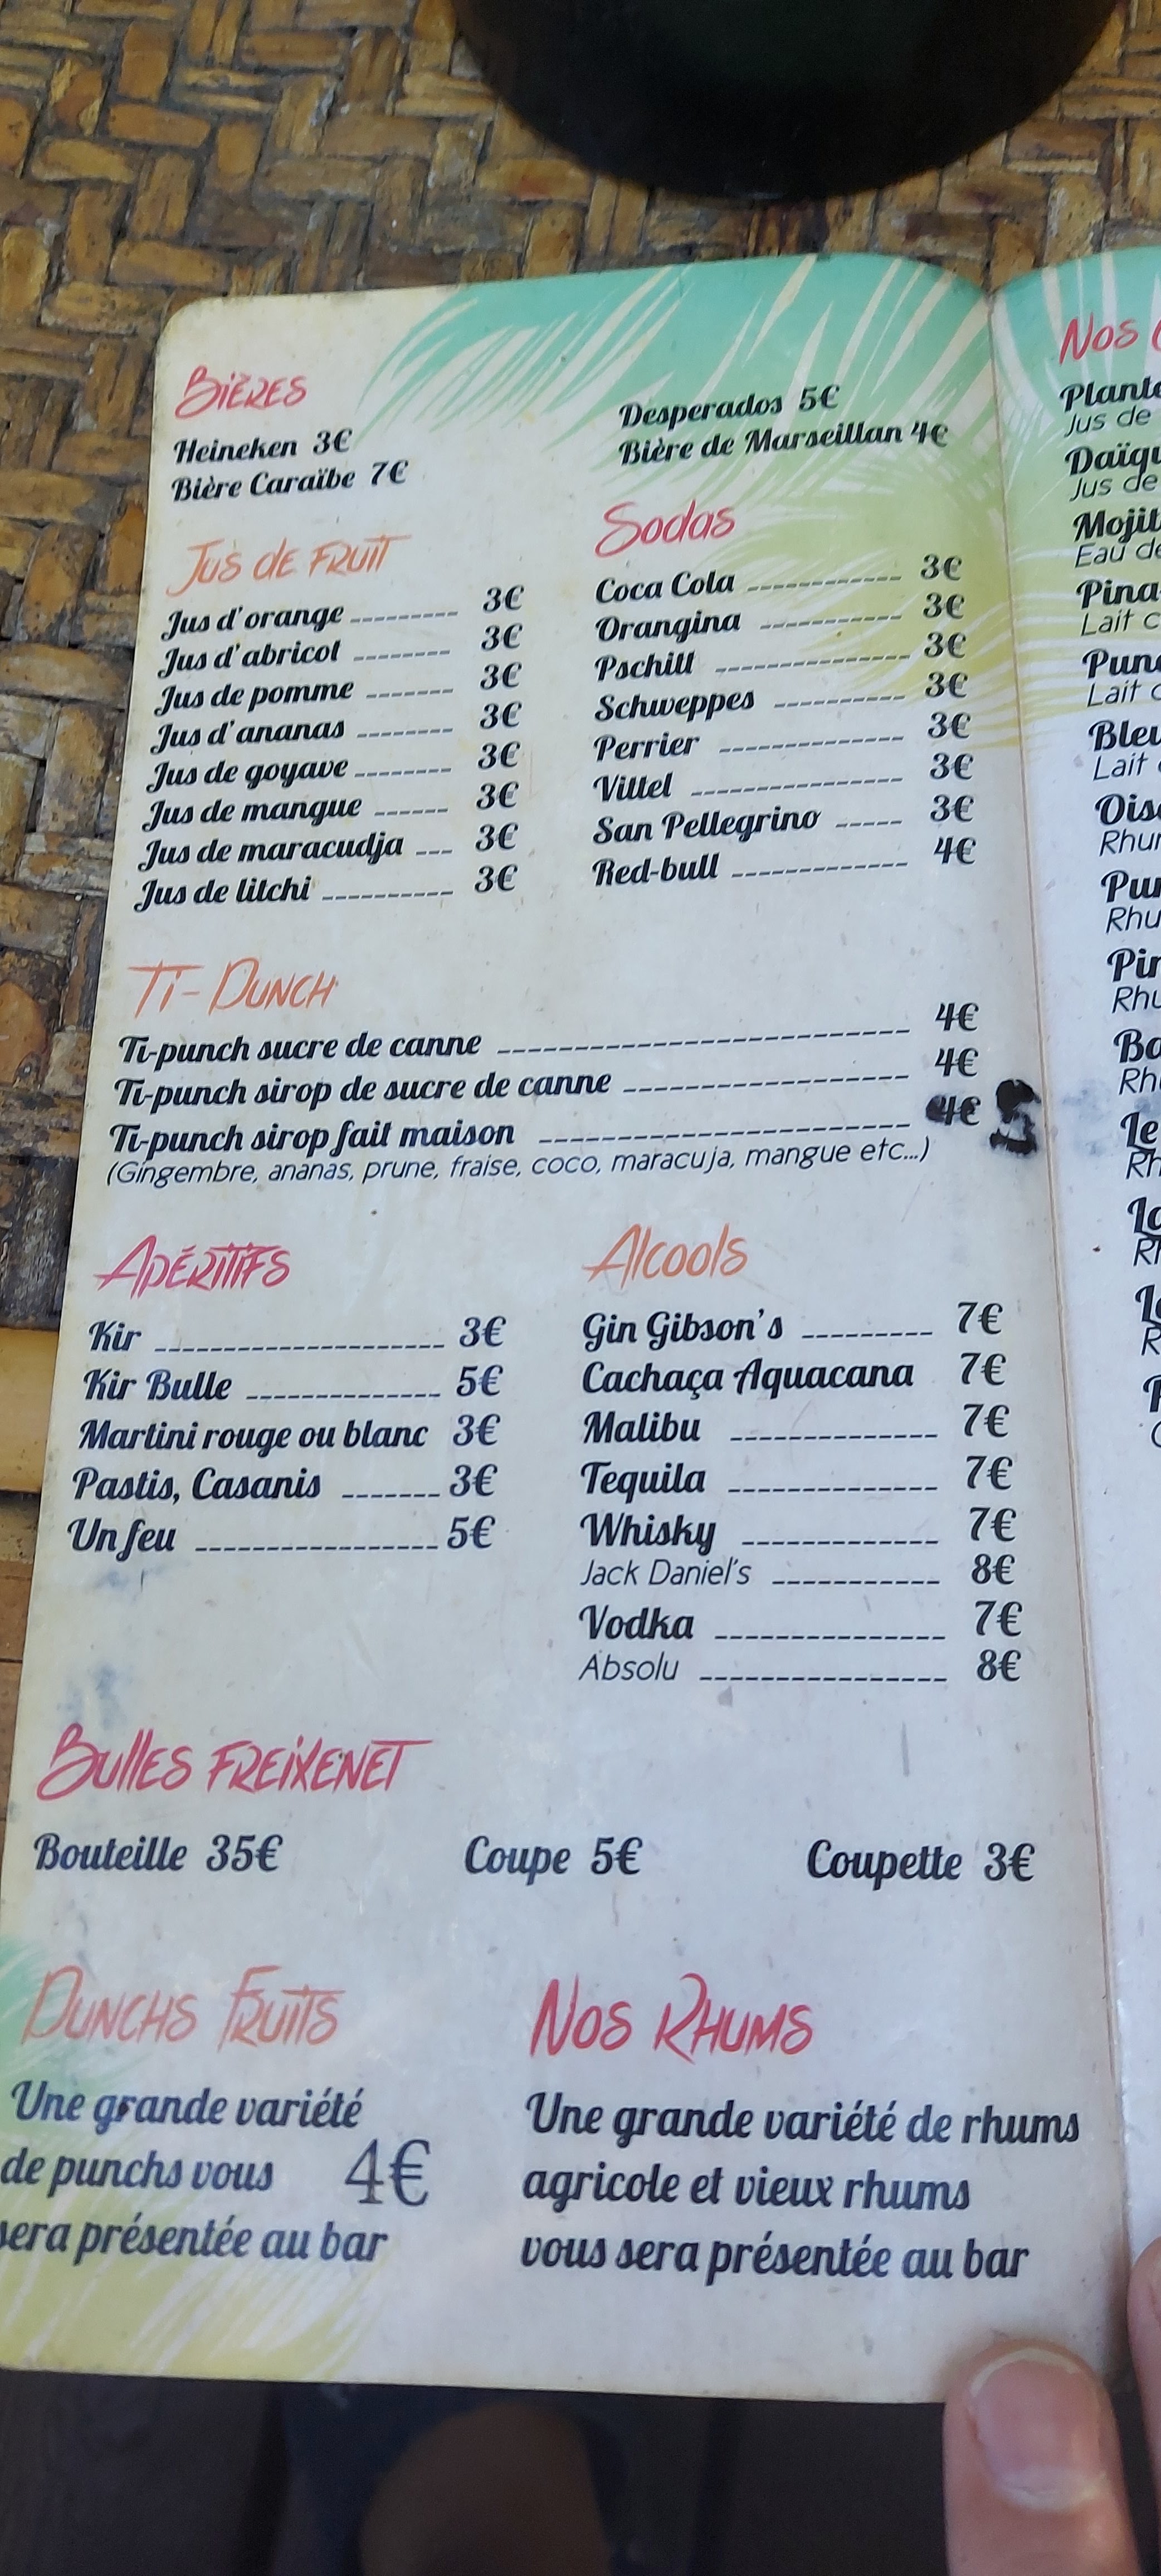 Bières
Heineken 3€
Bière Caraïbe 7€
Desperados 5€
Bière de Marseillan 4€
Jus de Fruit
Jus d'orange 3€
Jus d'abricot 3€
Jus de pomme 3€
Jus d'ananas 3€
Jus de goyave 3€
Jus de mangue 3€
Jus de maracudja 3€
Jus de litchi 3€
Sodas
Coca Cola 3€
Orangina 3€
Pschitt 3€
Schweppes 3€
Perrier 3€
Vittel 3€
San Pellegrino 3€
Red-bull 4€
Ti-Punch
Ti-punch sucre de canne 4€
Ti-punch sirop de sucre de canne 4€
Ti-punch sirop fait maison 4€ 5
(Gingembre, ananas, prune, fraise, coco, maracuja, mangue etc...)
Apéritifs
Kir 3€
Kir Bulle 5€
Martini rouge ou blanc 3€
Pastis, Casanis 3€
Un feu 5€
Alcools
Gin Gibson's 7€
Cachaça Aquacana 7€
Malibu 7€
Tequila 7€
Whisky 7€
Jack Daniel's 8€
Vodka 7€
Absolu 8€
Bulles Freixenet
Bouteille 35€ Coupe 5€ Coupette 3€
Punchs Fruits
Une grande variété
de punchs vous 4€
sera présentée au bar
Nos Rhums
Une grande variété de rhums
agricole et vieux rhums
vous sera présentée au bar
Nos
Jus de
Jus de
Eau de
Lait
Lait
Lait